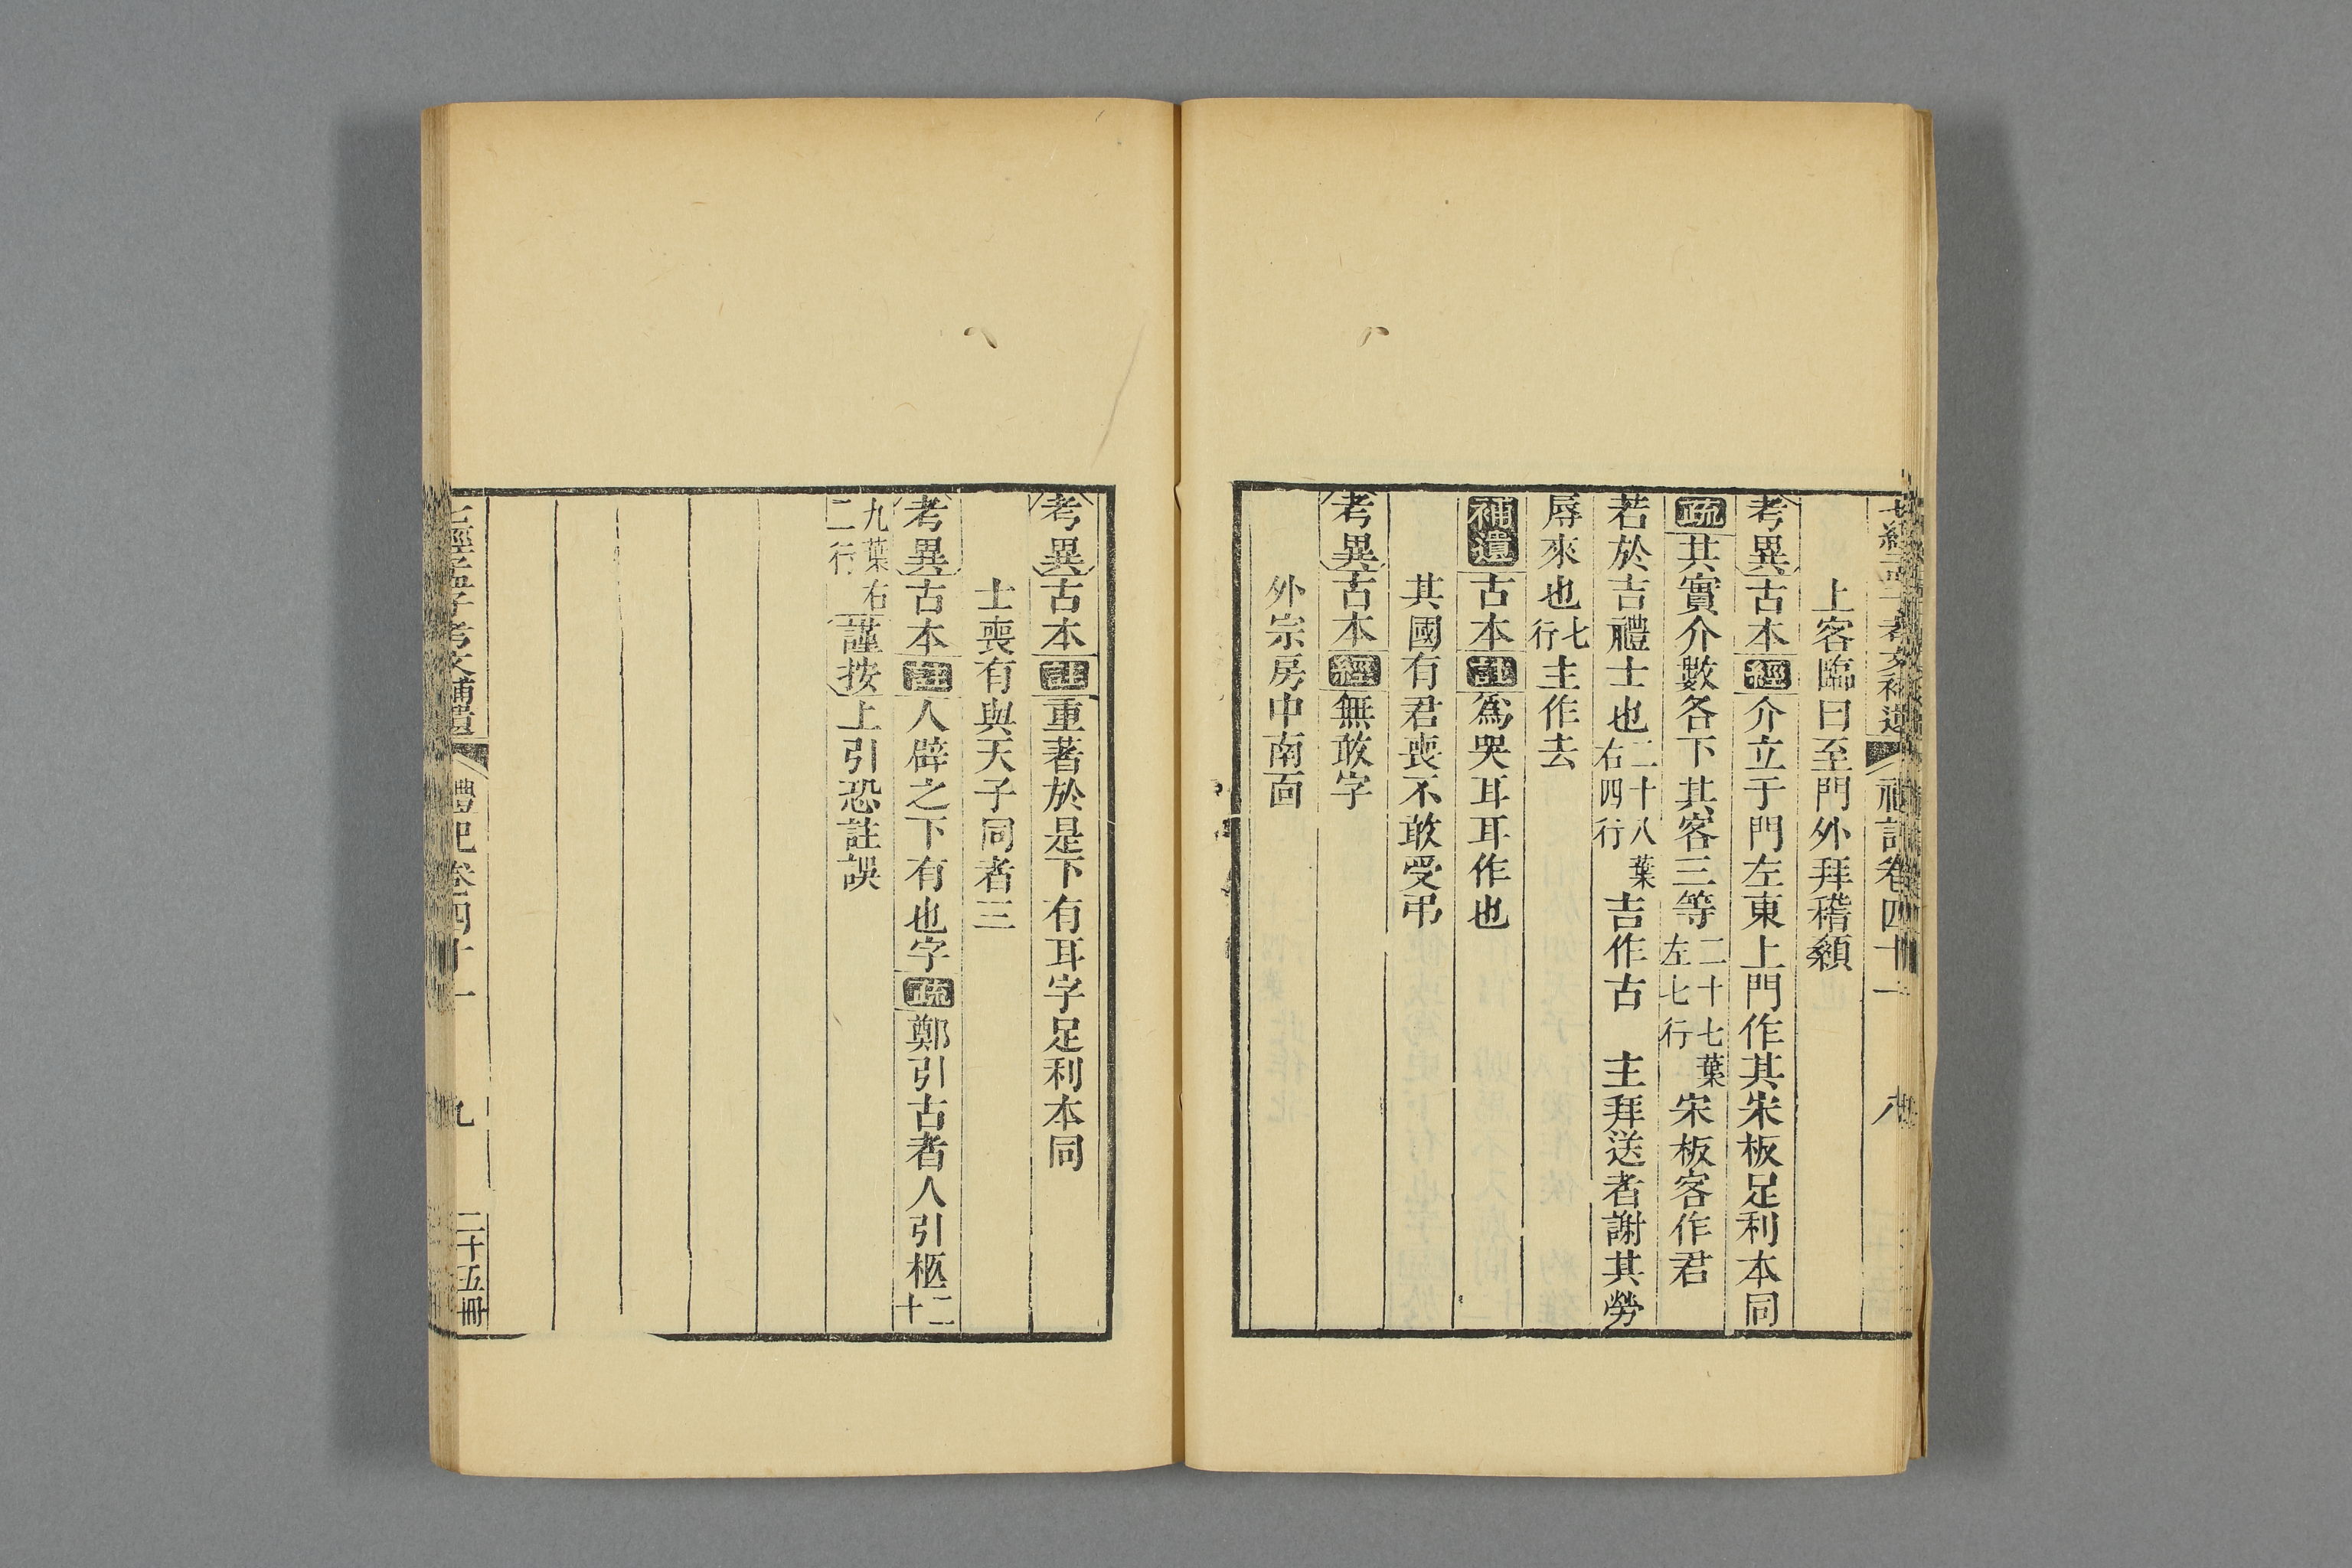 七經孟子考文補遺 禮記卷四十一 八
上客臨曰至門外拜稽顙
考異古本經介立于門左東上門作其宋板足利本同
疏其實介數各下其客三等二十七葉左七行宋板客作君
若於吉禮士也二十八葉右四行吉作古 主拜送者謝其勞
辱來也七行主作去
補遺古本註爲哭耳耳作也
其國有君喪不敢受弔
考異古本經無敢字
外宗房中南面
考異古本註重著於是下有耳字足利本同
士喪有與天子同者三
考異古本註人辟之下有也字疏鄭引古者人引柩二十
九葉右二行謹按上引恐註誤
七經孟子考文補遺 禮記卷四十一 九 二十五冊